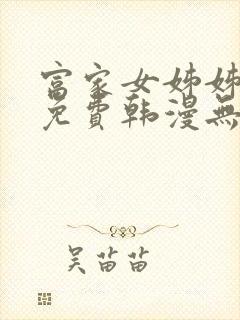 富家女姊姊
免費韩漫無
吴苗苗